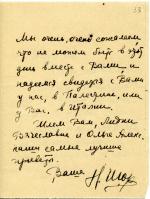 33
Мы очень, очень сожалеем
что не можем быть в этот
день вместе с Вами и
надеемся свидеться с Вами
у нас, в Палестине, или
у Вас, в Италии.
Шлем Вам, Лидии
Вячеславне и Ольге Алекс.
наши самые лучшие
приветы.
Ваша